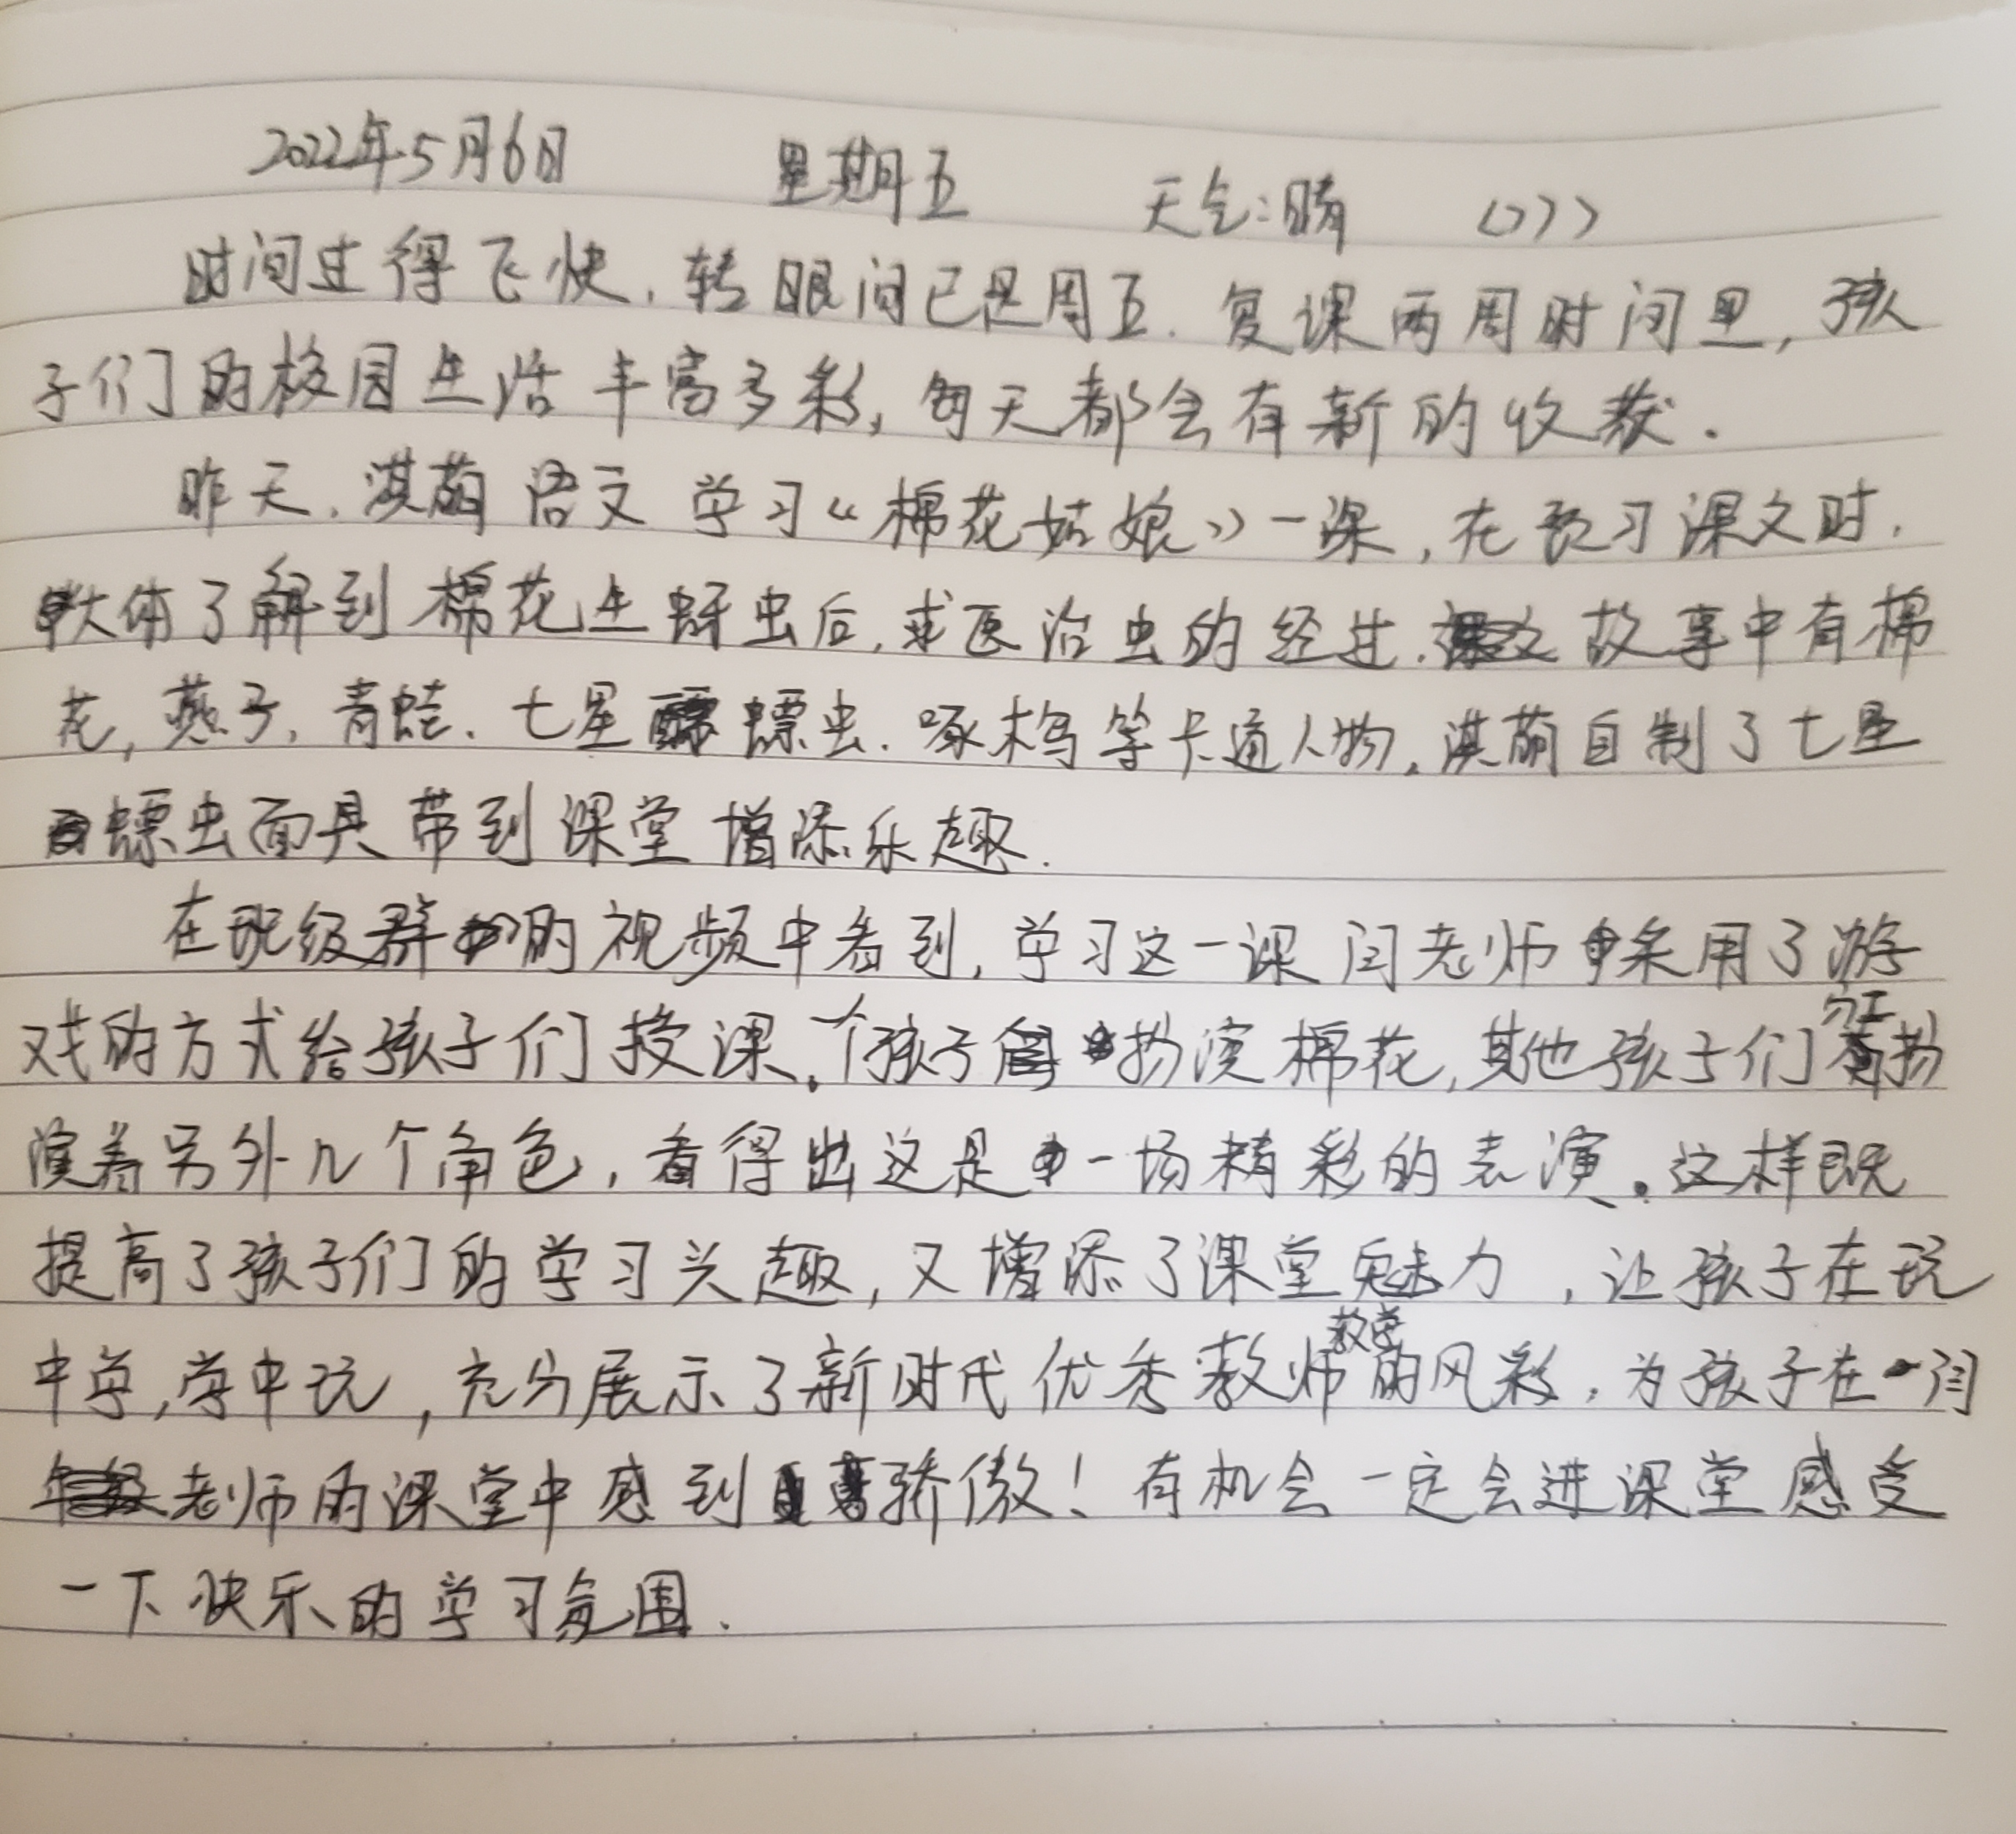 2022年5月6日 星期五 天气:晴
时间过得飞快,转眼间已是周五.复课两周时间里,孩
子们的校园生活丰富多彩,每天都会有新的收获.
昨天,淇萌语文学习《棉花姑娘》一课,在预习课文时,
大体了解到棉花生蚜虫后,求医治虫的经过.故事中有棉
花,燕子,青蛙、七星螵虫、啄木鸟等卡通人物,淇萌自制了七星
螵虫面具带到课堂增添乐趣.
在班级群的视频中看到,学习这一课闫老师采用了游
戏的方式给孩子们授课,一个孩子扮演棉花,其他孩子们分工扮
演着另外几个角色,看得出这是一场精彩的表演。这样既
提高了孩子们的学习兴趣,又增添了课堂魅力,让孩子在玩
中学,学中玩,充分展示了新时代优秀教师教学的风彩,为孩子在闫
老师的课堂中感到骄傲!有机会一定会进课堂感受
一下快乐的学习氛围.